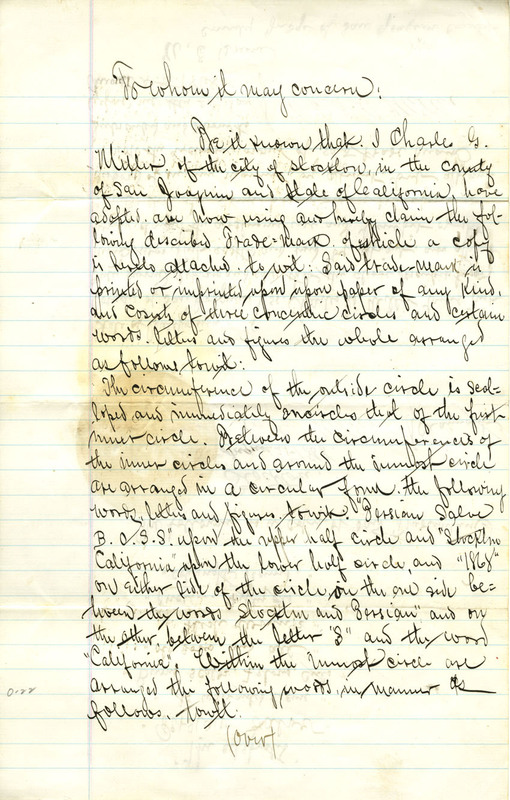 To whom it may concern:
Be it known that I Charles G.
Miller, of the city of Stockton, in the county
of San Joaquin and State of California, have
adopted, am now using and hereby claim the fol-
lowing described Trade=Mark of which a copy
is hereto attached, to wit: Said trade-mark is
printed or imprinted upon upon paper of any kind,
and consists of three concentric circles and certain
words, letters and figures the whole arranged
as follows towit:
The circumference of the outside circle is scal-
loped and immediately encircles that of the first
inner circle. Between the circumferences of
the inner circles and around the inmost circle
are arranged in a circular form, the following
words, letters and figures towit. "Persian Salve
B. C. S. S." upon the upper half circle and "Stockton
California" upon the lower half circle, and "1868"
on either side of the circle, on the one side be=
tween the words Stockton and Persian" and on
the other between the letter "S" and the word
"California". Within the inmost circle are
arranged the following words, in manner as
follows, towit.
(over)